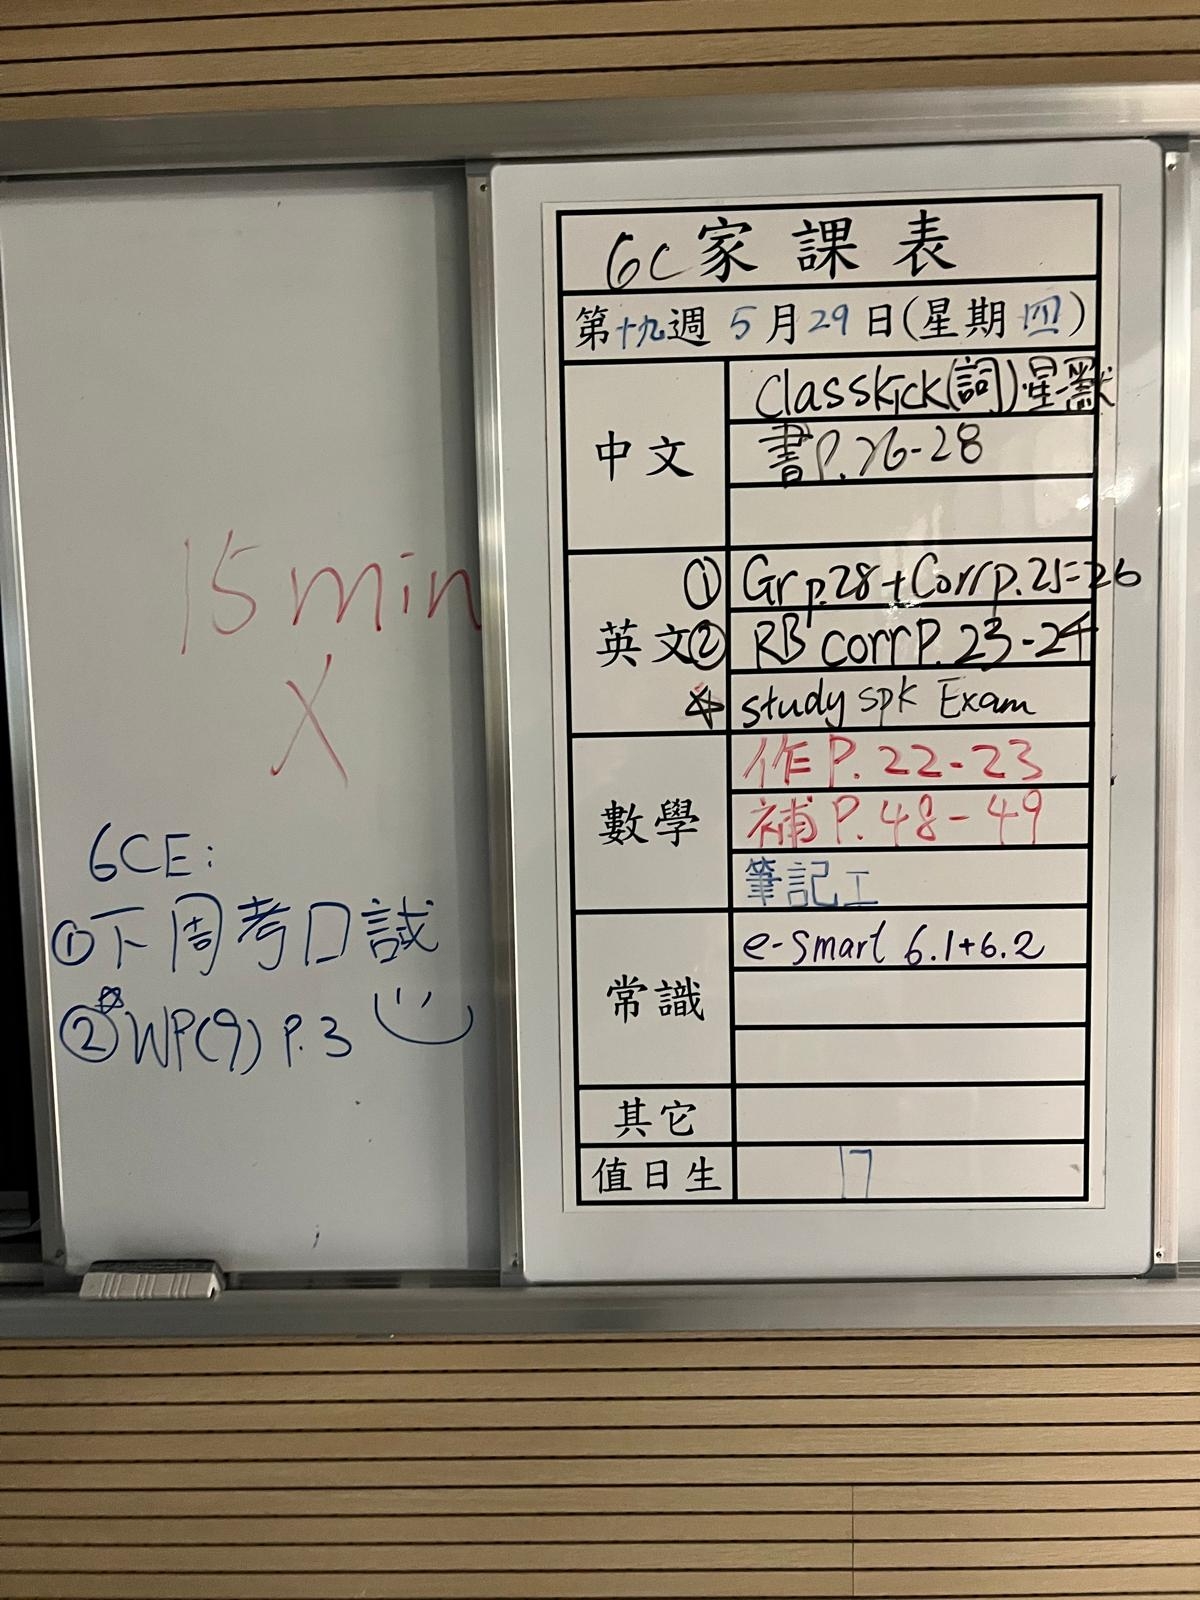 15 min
X
6CE:
①下周考口試
②☆WP(9) P.3
6C家課表
第十九週 5月29日(星期四)
中文
Classkick(詞)星默
書P.26-28
英文
① Gr p.28 + Corr p.25-26
② RB corr P. 23-24
☆ study spk Exam
數學
作P. 22-23
補P. 48-49
筆記工
常識
e-smart 6.1+6.2
其它
值日生
17